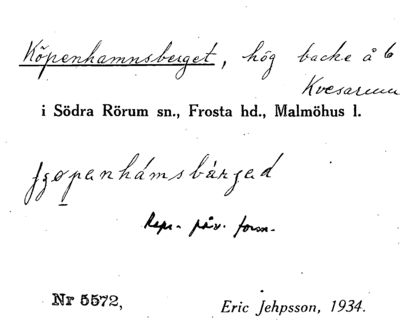 Köpenhamnsberget, hög backe å 6
Kvesarum
i Södra Rörum sn., Frosta hd., Malmöhus l.
Repr. påv. form.
Nr 5572,
Eric Jehpsson, 1934.